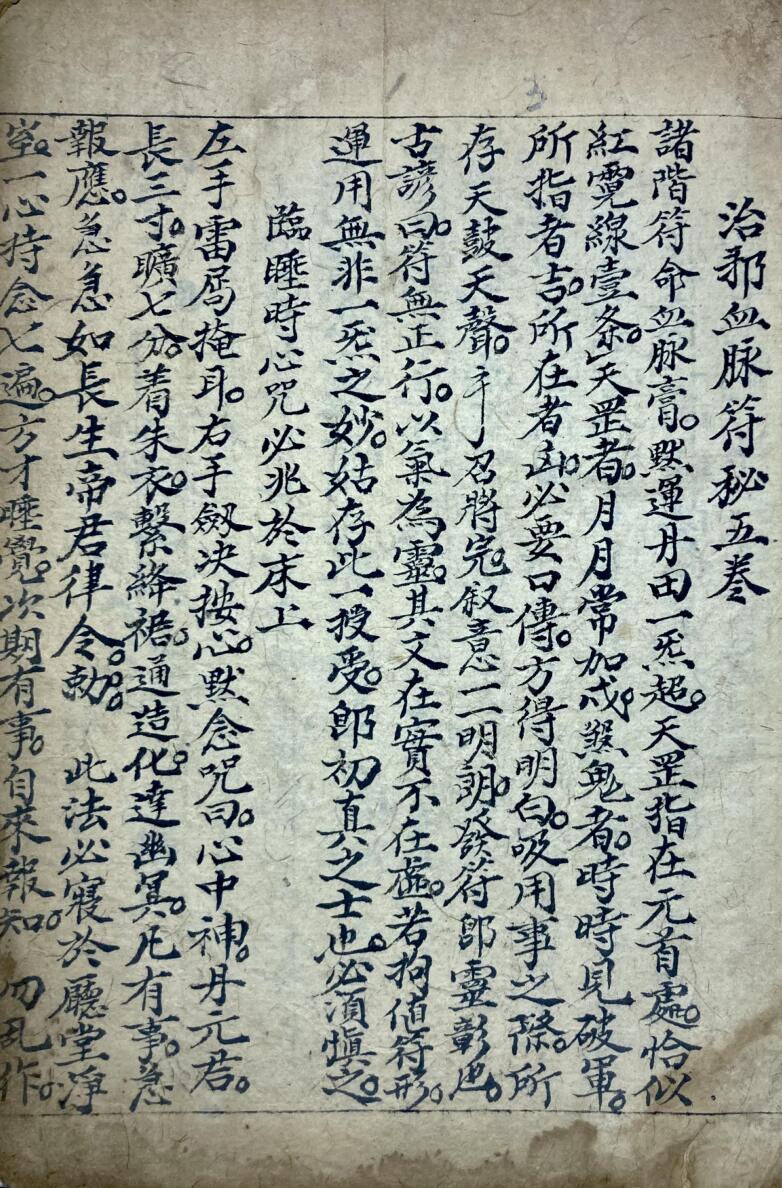 治邪血脉符秘五卷
諸階符命血脉膏。默運丹田一炁超。天罡指在元首處。恰似
紅霓線壹条。天罡者。月月常加戍。煞鬼者。時時見破軍。
所指者吉。所在者凶。必要口傳。方得明白。吸用事之際。所
存天鼓天聲。手召將完。叙意一二明朗。發符郎靈彰也。
古諺曰。符無正行。以氣為靈。其文在實不在虛。若拘值符形。
運用無非一炁之妙。姑存此一授受。郎初真之士也。必須慎之。
臨睡時心咒必兆於床上
左手雷局掩耳。右手劔决按心。默念咒曰。心中神。丹元君。
長三寸。曠七分。着朱衣。繫絳裙。通造化。達幽冥。凡有事。急
報應。急急如長生帝君律令。勅。 此法必寢於廳堂淨
室。一心持念七遍。方才睡覺。次期有事。自來報知。勿乱作。